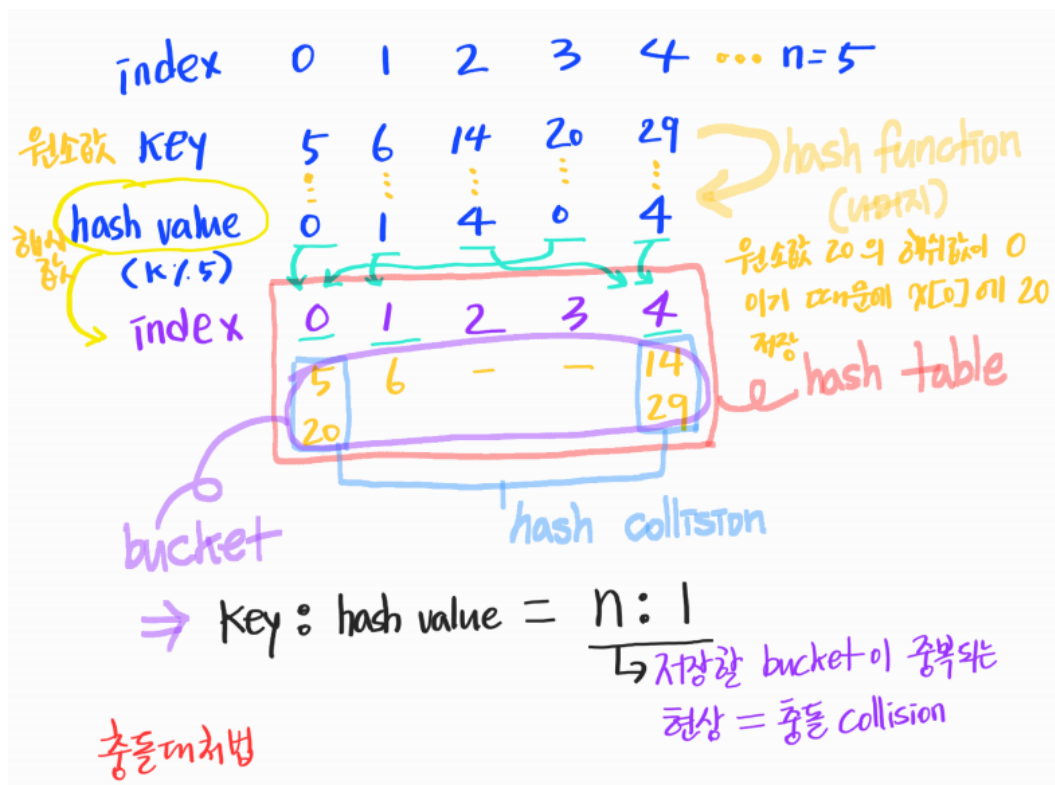 index 0 1 2 3 4 ... n=5
원소값 key 5 6 14 20 29
hash function
(나머지)
해시값 hash value 0 1 4 0 4
(K%5)
원소값 20의 해쉬값이 0
이기 때문에 x[0]에 20
저장
index 0 1 2 3 4
5 6 - - 14
20 29
hash table
bucket
hash collision
⇒ key : hash value = n : 1
↳ 저장할 bucket이 중복되는
현상 = 충돌 collision
충돌대처법